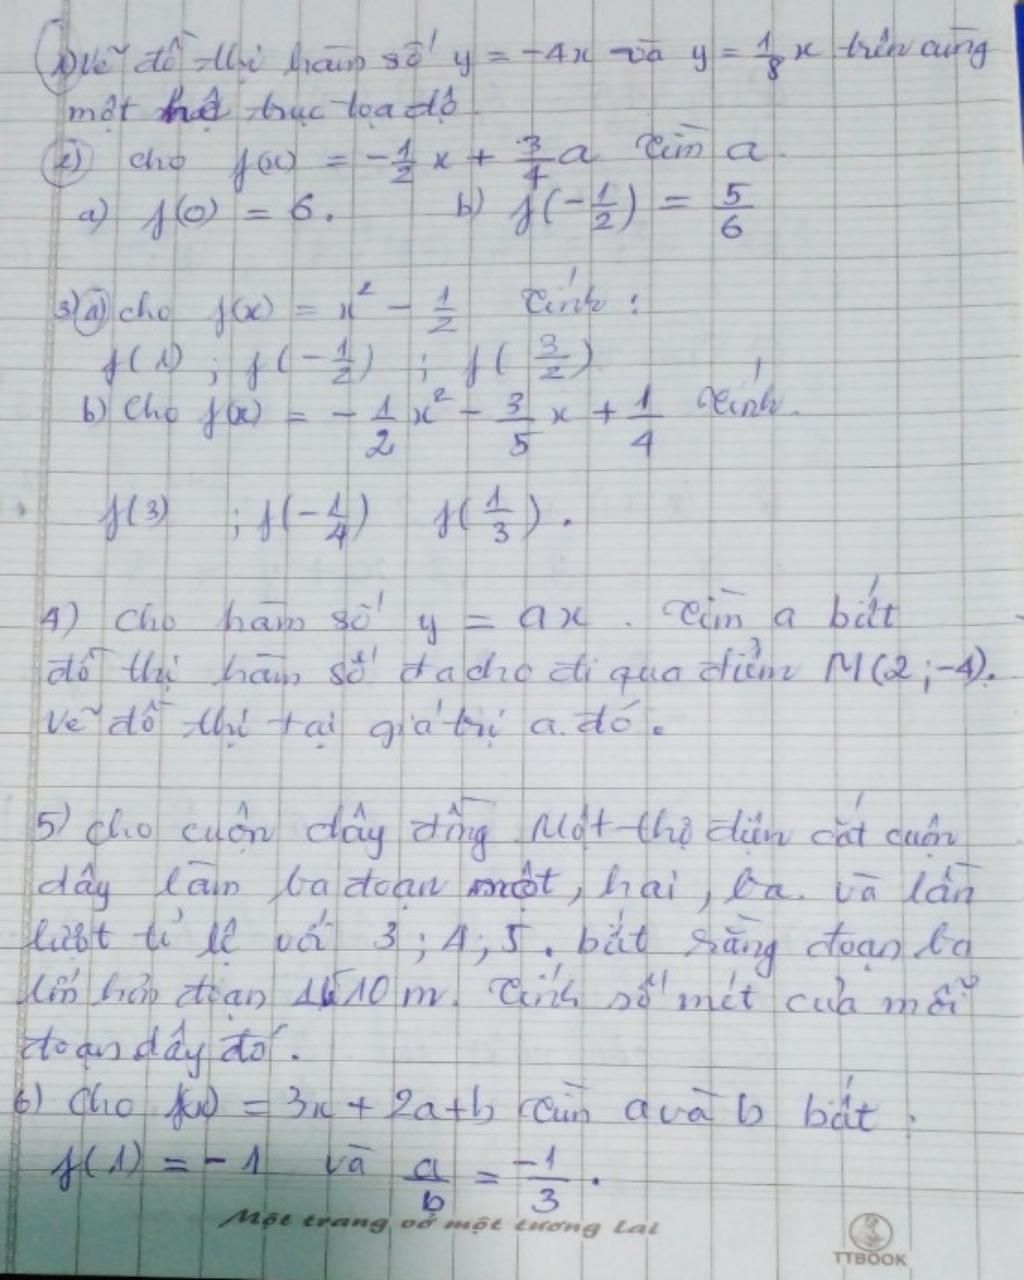 1) Vẽ đồ thị hàm số y = -4x và y = 1/8 x trên cùng
một hệ trục tọa độ
2) cho f(x) = -1/2 x + 3/4 a tìm a.
a) f(0) = 6. b) f(-1/2) = 5/6
3) a) cho f(x) = x² - 1/2 Tính :
f(1) ; f(-1/2) ; f(3/2)
b) Cho f(x) = -1/2 x² - 3/5 x + 1/4 tính.
f(3) ; f(-1/4) f(1/3) .
4) cho hàm số y = ax . tìm a biết
đồ thị hàm số đa cho đi qua điểm M(2 ; -4).
vẽ đồ thị tại giá trị a đó.
5) cho cuộn dây đồng Một thợ điện cắt cuộn
dây làm ba đoạn một, hai, ba. và lần
lượt tỉ lệ với 3 ; 4 ; 5 . biết rằng đoạn ba
lớn hơn đoạn 1 10 m. Tính số mét của mỗi
đoạn dây đó.
6) Cho f(x) = 3x + 2a + b tìm a và b biết .
f(1) = -1 và a/b = -1/3 .
Một trang vở một tương lai
TTBOOK